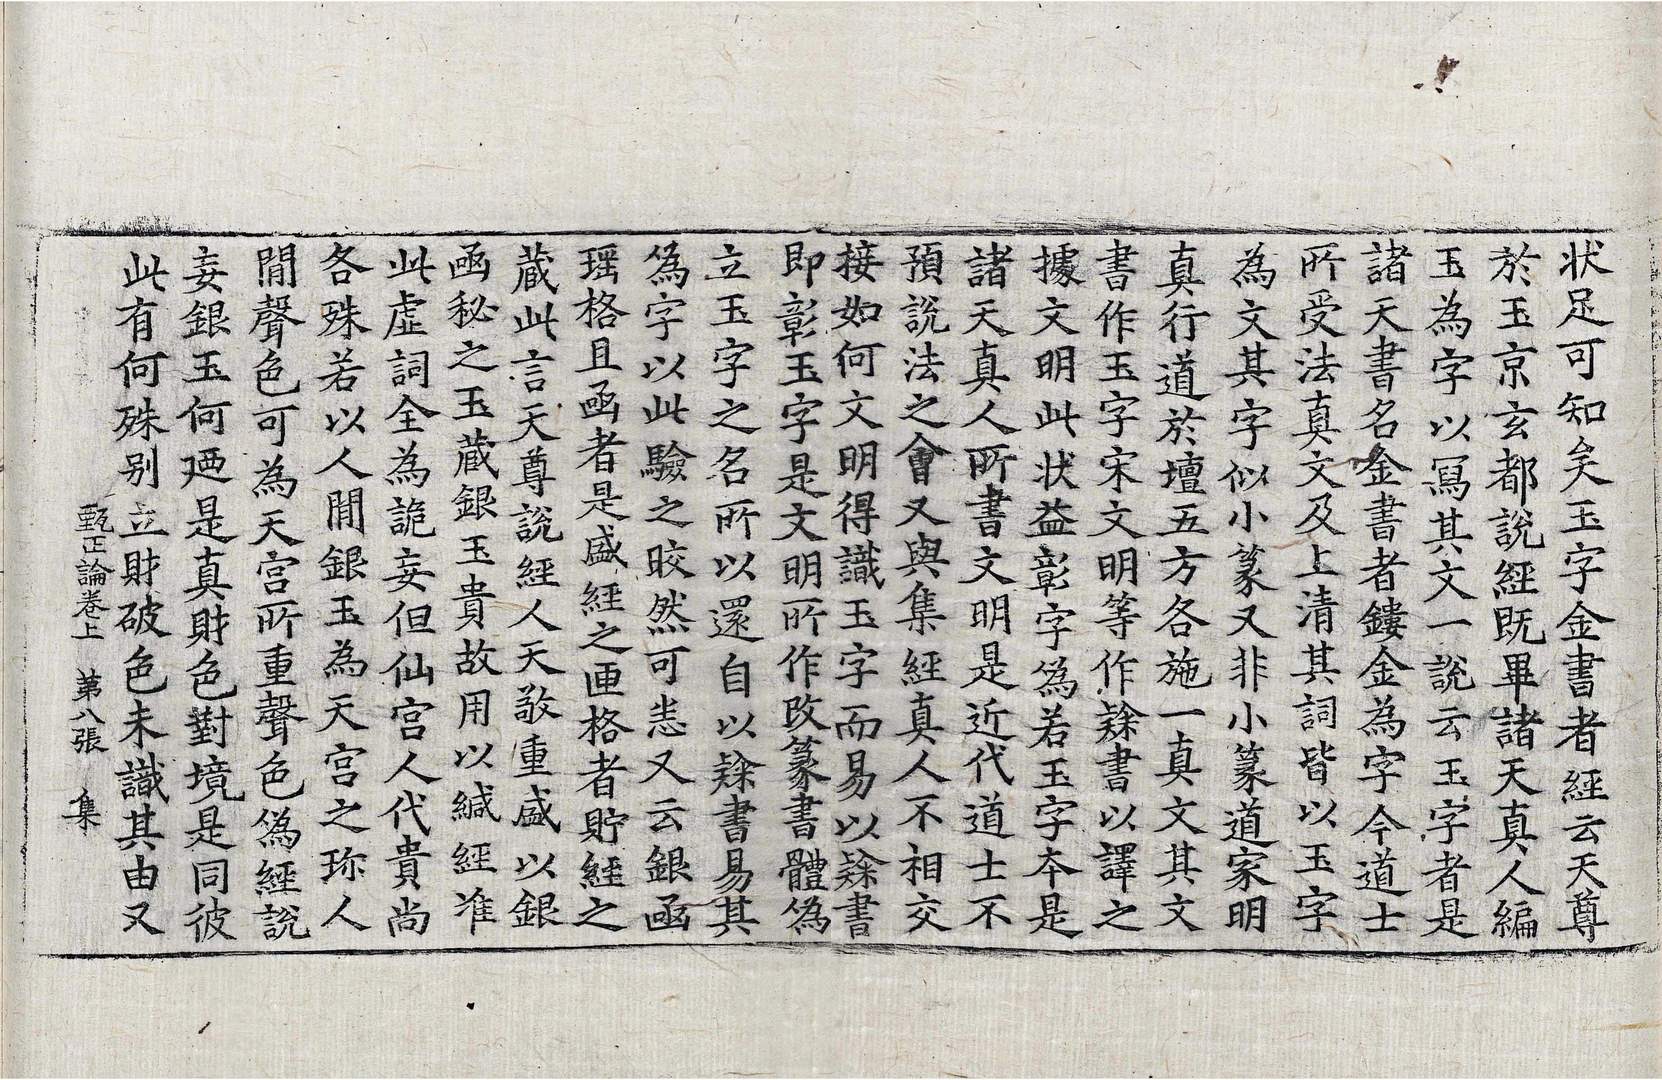 状足可知矣玉字金書者經云天尊
於玉京玄都說經既畢諸天真人編
玉為字以寫其文一說云玉字者是
諸天書名金書者鏤金為字今道士
所受法真文及上清其詞皆以玉字
為文其字似小篆又非小篆道家明
真行道於壇五方各施一真文其文
書作玉字宋文明等作隸書以譯之
據文明此状益彰字為若玉字本是
諸天真人所書文明是近代道士不
預說法之會又與集經真人不相交
接如何文明得識玉字而易以隸書
即彰玉字是文明所作改篆書體為
立玉字之名所以還自以隸書易其
為字以此驗之晈然可恚又云銀函
瑶格且函者是盛經之匣格者貯經之
蔵此言天尊說經人天敬重盛以銀
函秘之玉蔵銀玉貴故用以緘經准
此虛詞全為詭妄但仙宮人代貴尚
各殊若以人間銀玉為天宮之珎人
間聲色可為天宮所重聲色為經說
妄銀玉何廼是真財色對境是同彼
此有何殊别立財破色未識其由又
甄正論卷上　第八張　集